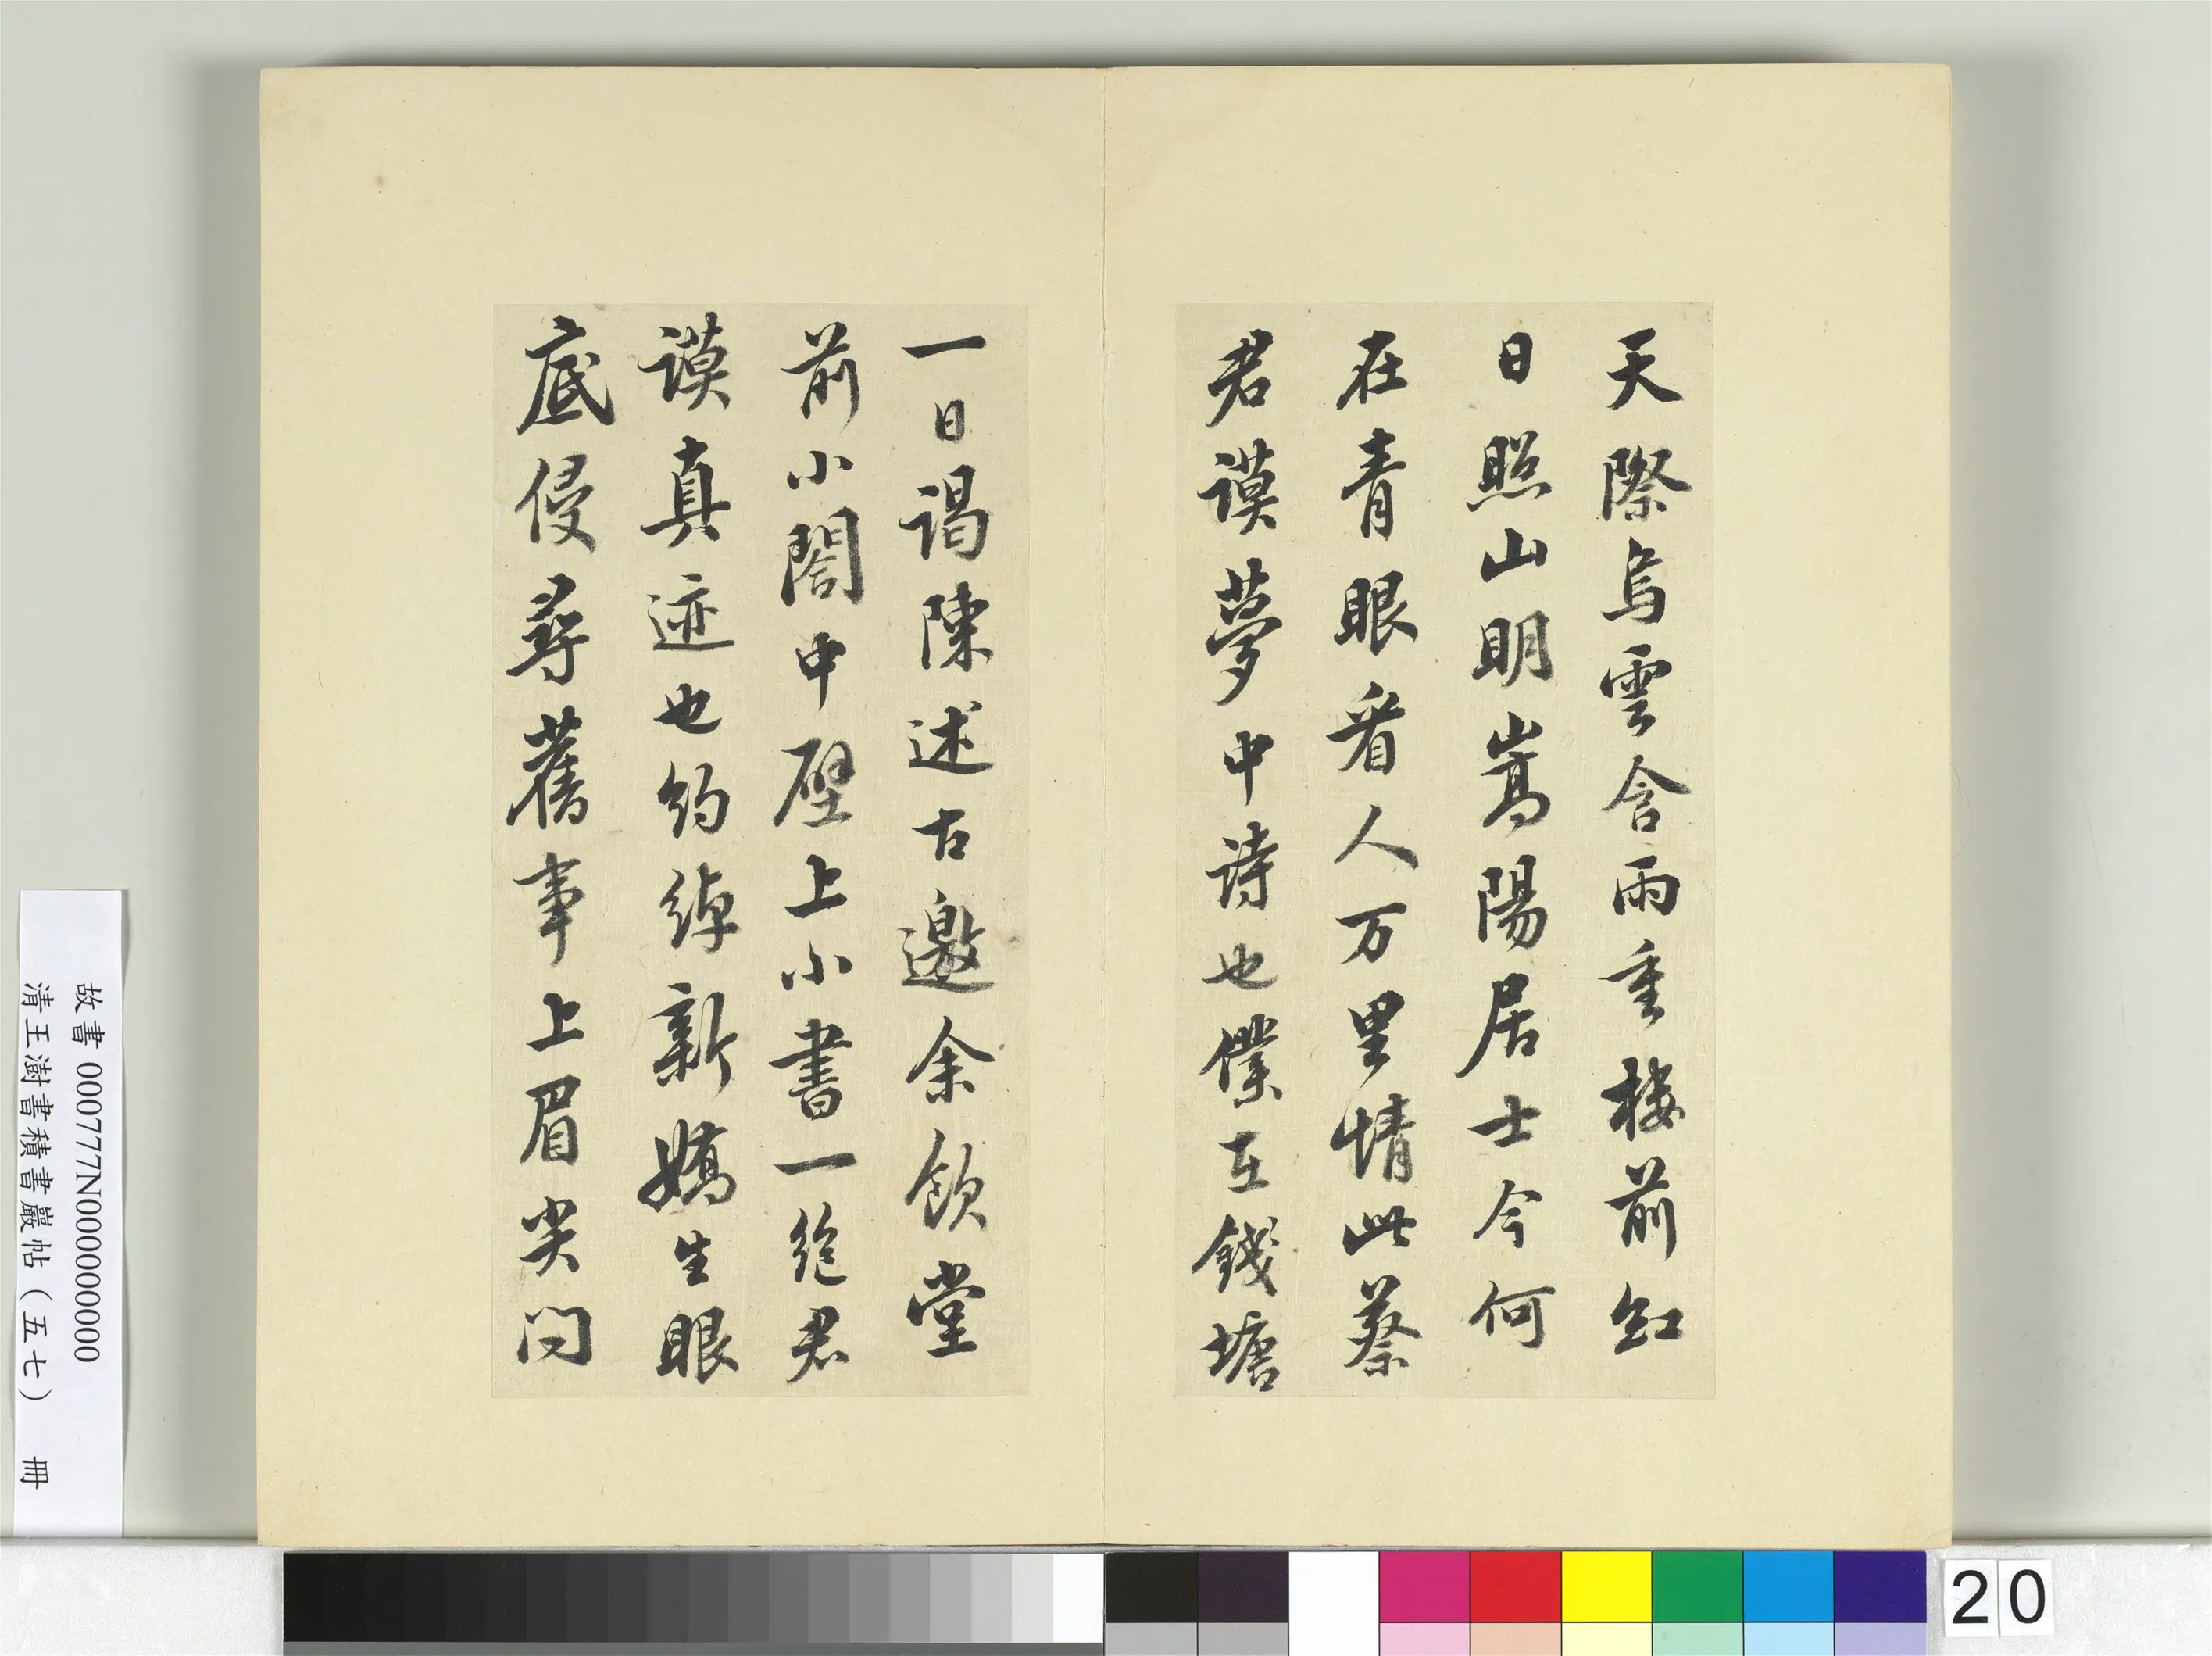 天際烏雲含雨重樓前紅
日照山明嵩陽居士今何
在青眼看人万里情此蔡
君謨夢中詩也僕在錢塘
一日謁陳述古邀余飲堂
前小閣中壁上小書一絕君
謨真迹也約綽新嬌生眼
底侵尋舊事上眉尖問
故書 000777N000000000
清王澍書積書巖帖(五七) 冊
20